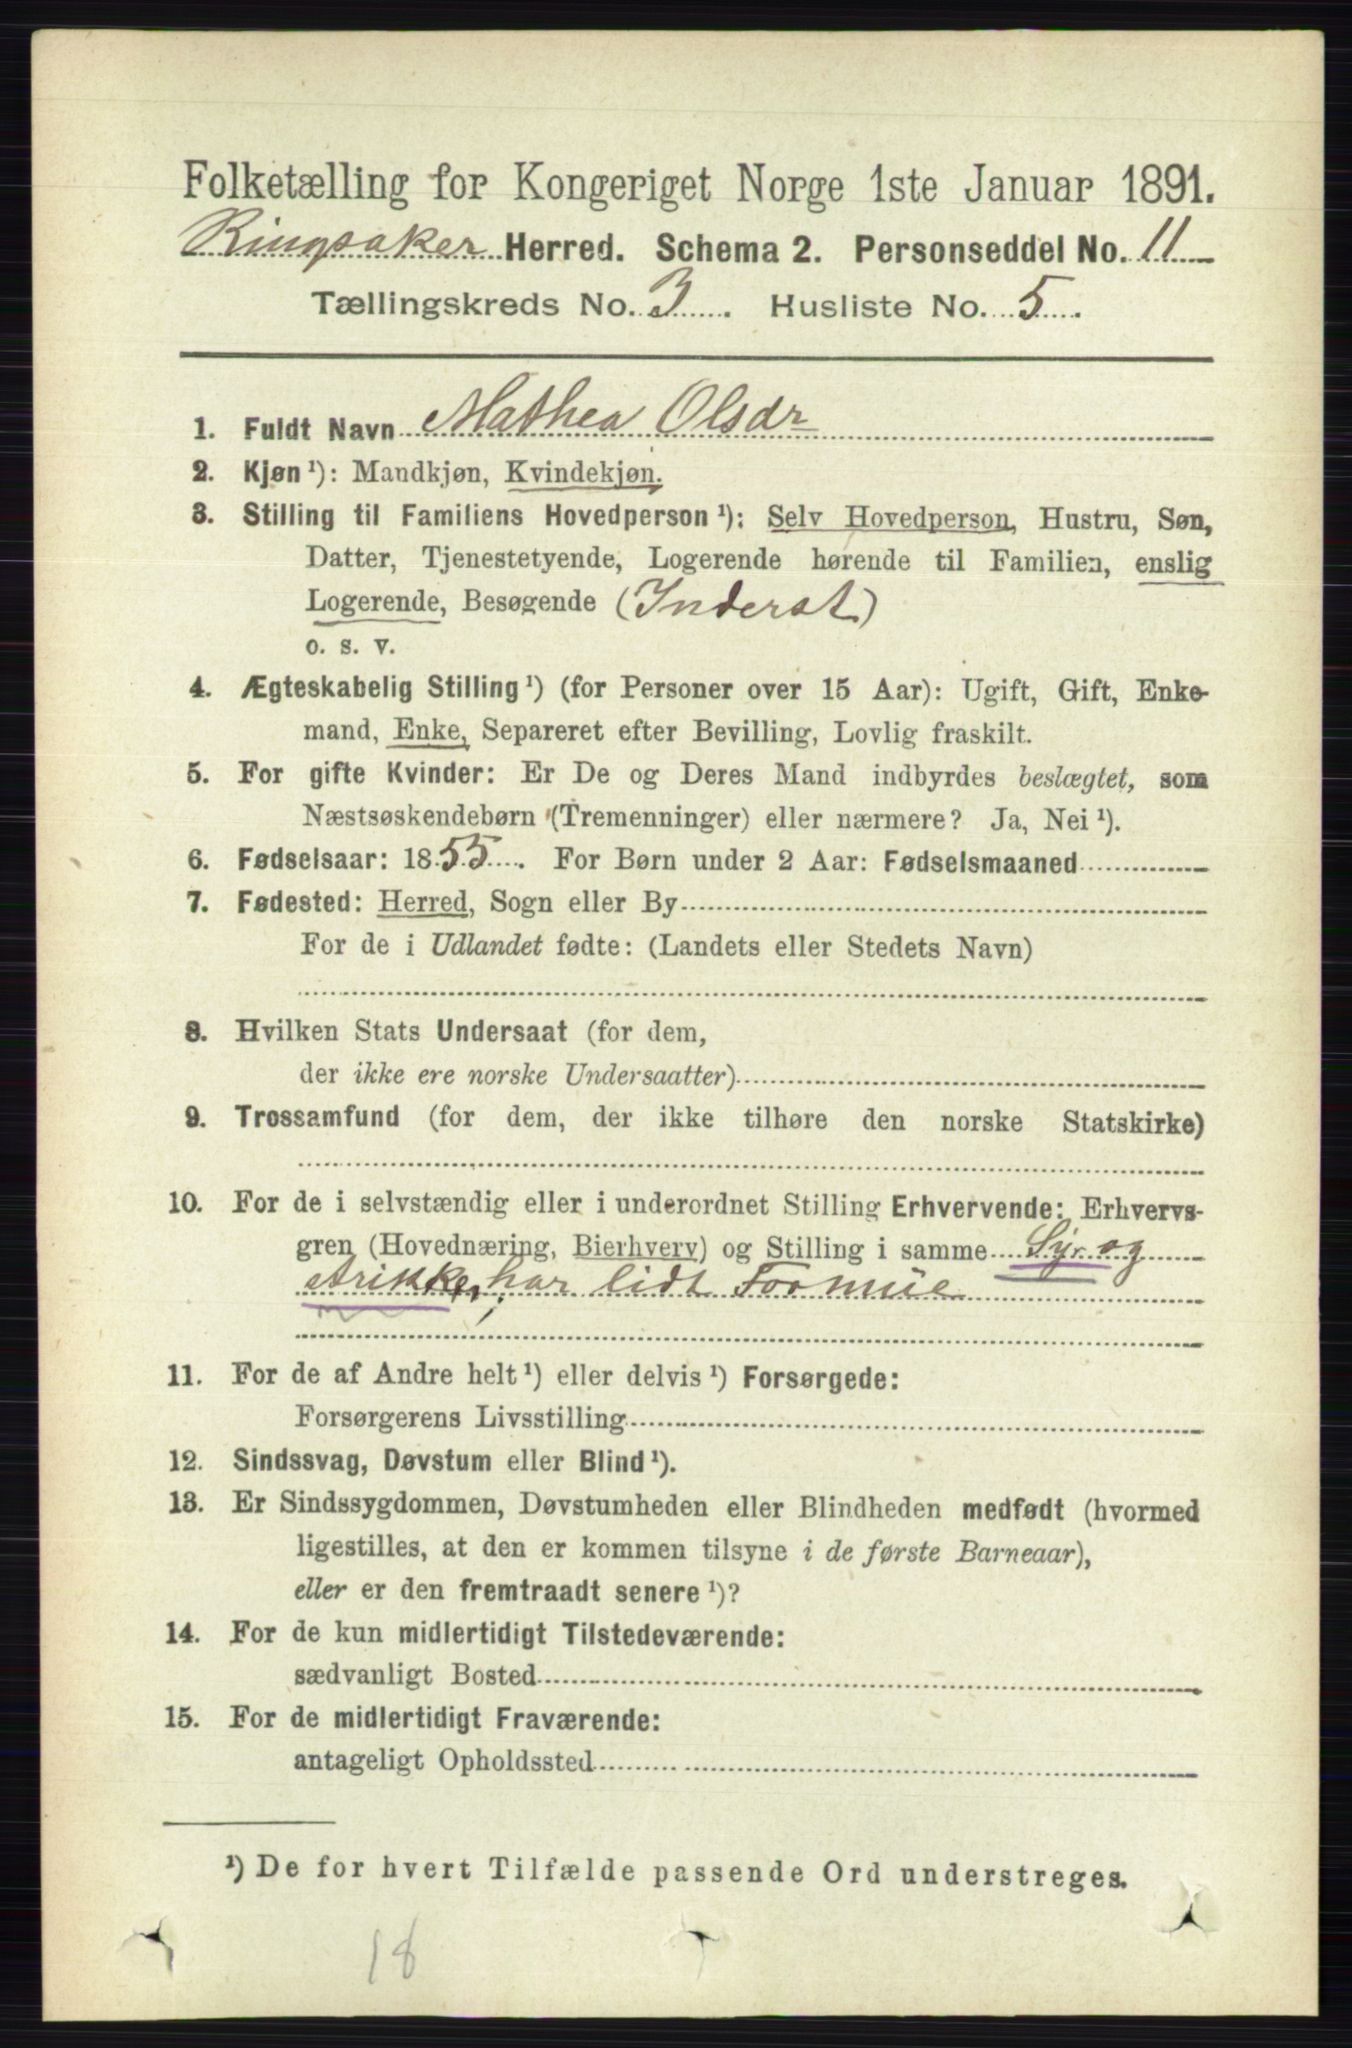 Folketælling for Kongeriget Norge 1ste Januar 1891.
Ringsaker Herred. Schema 2. Personseddel No. 11
Tællingskreds No. 3. Husliste No. 5.
1. Fuldt Navn Mathea Olsdr
2. Kjøn¹): Mandkjøn, Kvindekjøn.
3. Stilling til Familiens Hovedperson¹): Selv Hovedperson, Hustru, Søn,
Datter, Tjenestetyende, Logerende hørende til Familien, enslig
Logerende, Besøgende (Inderst)
o. s. v.
4. Ægteskabelig Stilling¹) (for Personer over 15 Aar): Ugift, Gift, Enke-
mand, Enke, Separeret efter Bevilling, Lovlig fraskilt.
5. For gifte Kvinder: Er De og Deres Mand indbyrdes beslægtet, som
Næstsøskendebørn (Tremenninger) eller nærmere? Ja, Nei¹).
6. Fødselsaar: 1855. For Børn under 2 Aar: Fødselsmaaned
7. Fødested: Herred, Sogn eller By
For de i Udlandet fødte: (Landets eller Stedets Navn)
8. Hvilken Stats Undersaat (for dem,
der ikke ere norske Undersaatter)
9. Trossamfund (for dem, der ikke tilhøre den norske Statskirke)
10. For de i selvstændig eller i underordnet Stilling Erhvervende: Erhvervs-
gren (Hovednæring, Bierhverv) og Stilling i samme Syr og
strikker, har lidt Formue
11. For de af Andre helt¹) eller delvis¹) Forsørgede:
Forsørgerens Livsstilling
12. Sindssvag, Døvstum eller Blind¹).
13. Er Sindssygdommen, Døvstumheden eller Blindheden medfødt (hvormed
ligestilles, at den er kommen tilsyne i de første Barneaar),
eller er den fremtraadt senere¹)?
14. For de kun midlertidigt Tilstedeværende:
sædvanligt Bosted
15. For de midlertidigt Fraværende:
antageligt Opholdssted
¹) De for hvert Tilfælde passende Ord understreges.
18